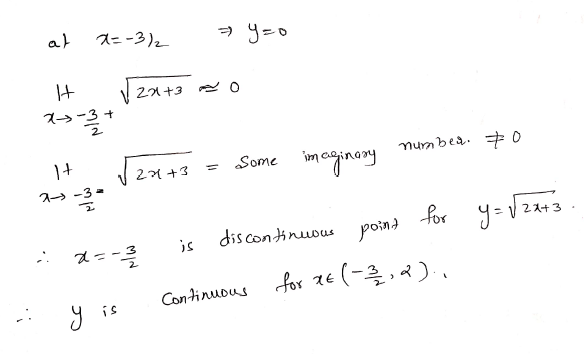 at x=-3/2 ⇒ y=0
lt x→-3/2+ √2x+3 ≈ 0
lt x→-3/2- √2x+3 = Some imaginary number. ≠0
∴ x=-3/2 is discontinuous point for y=√2x+3.
∴ y is Continuous for x∈(-3/2, ∝).